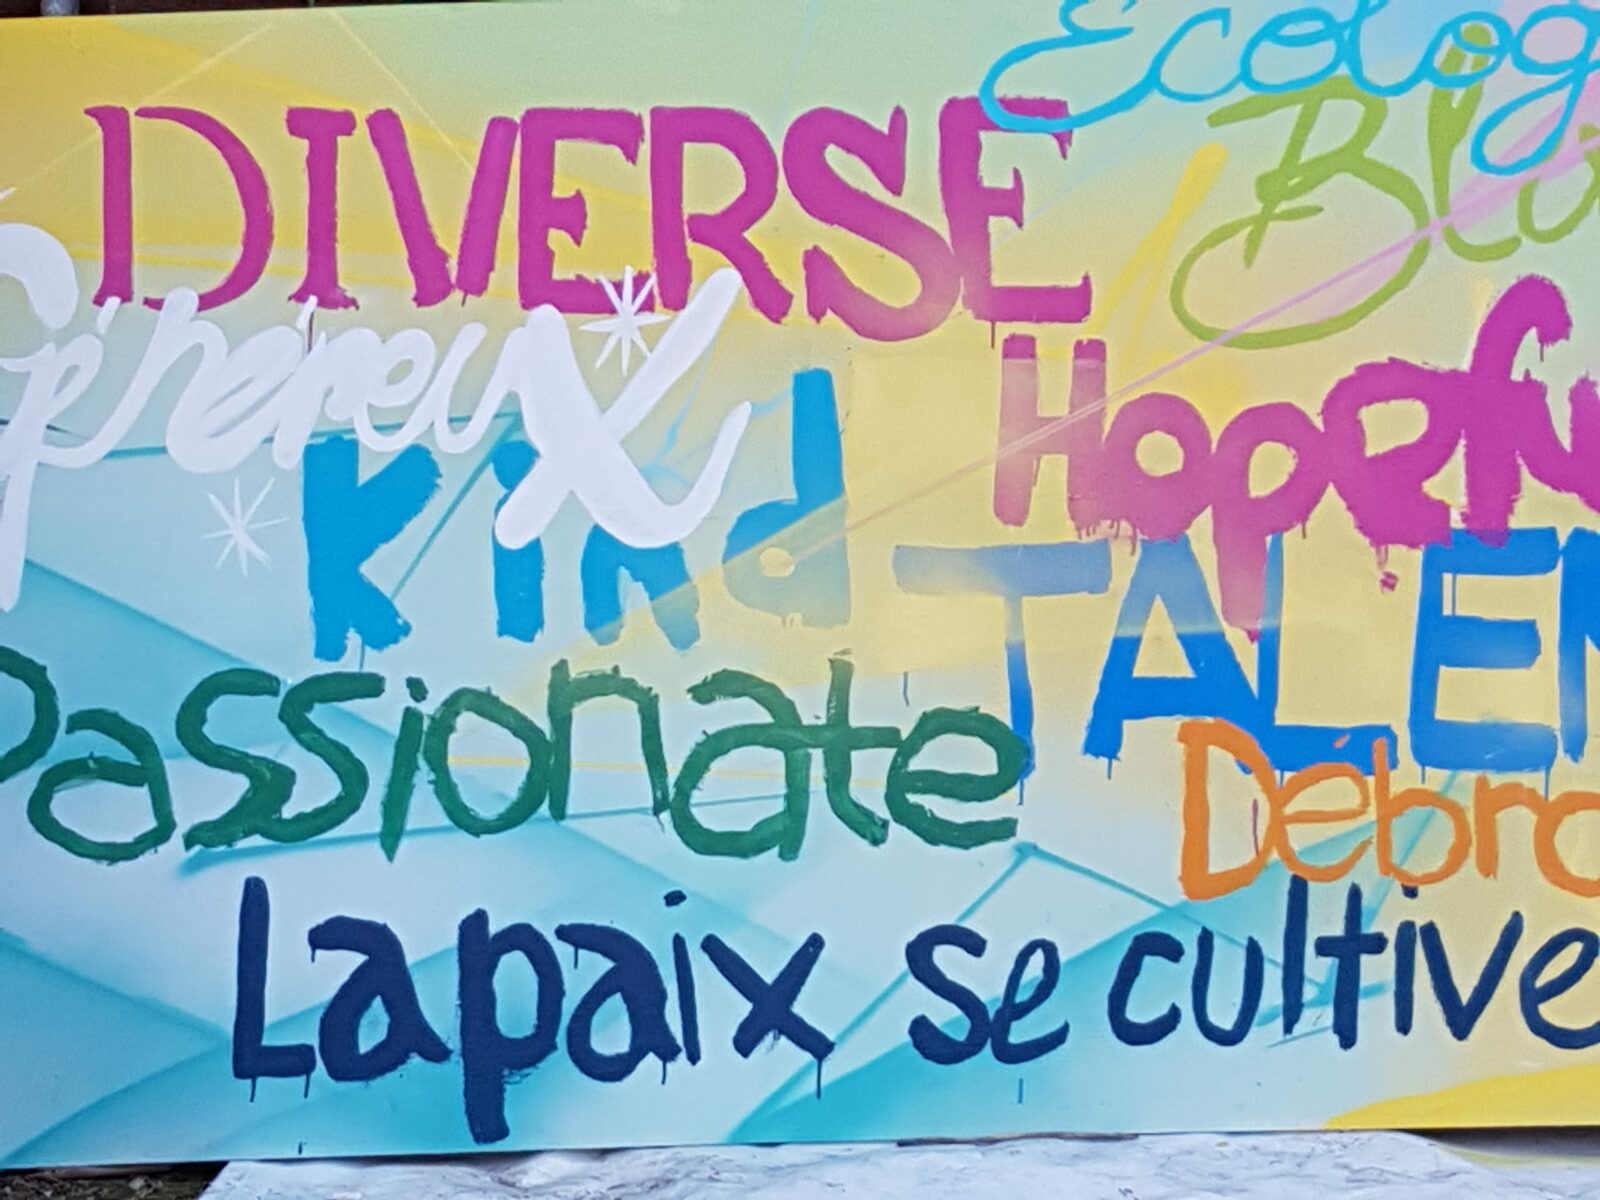 Ecolog
DIVERSE
Blu
Généreux
Hopefu
Kind
TALEN
Passionate
Débro
La paix se cultive